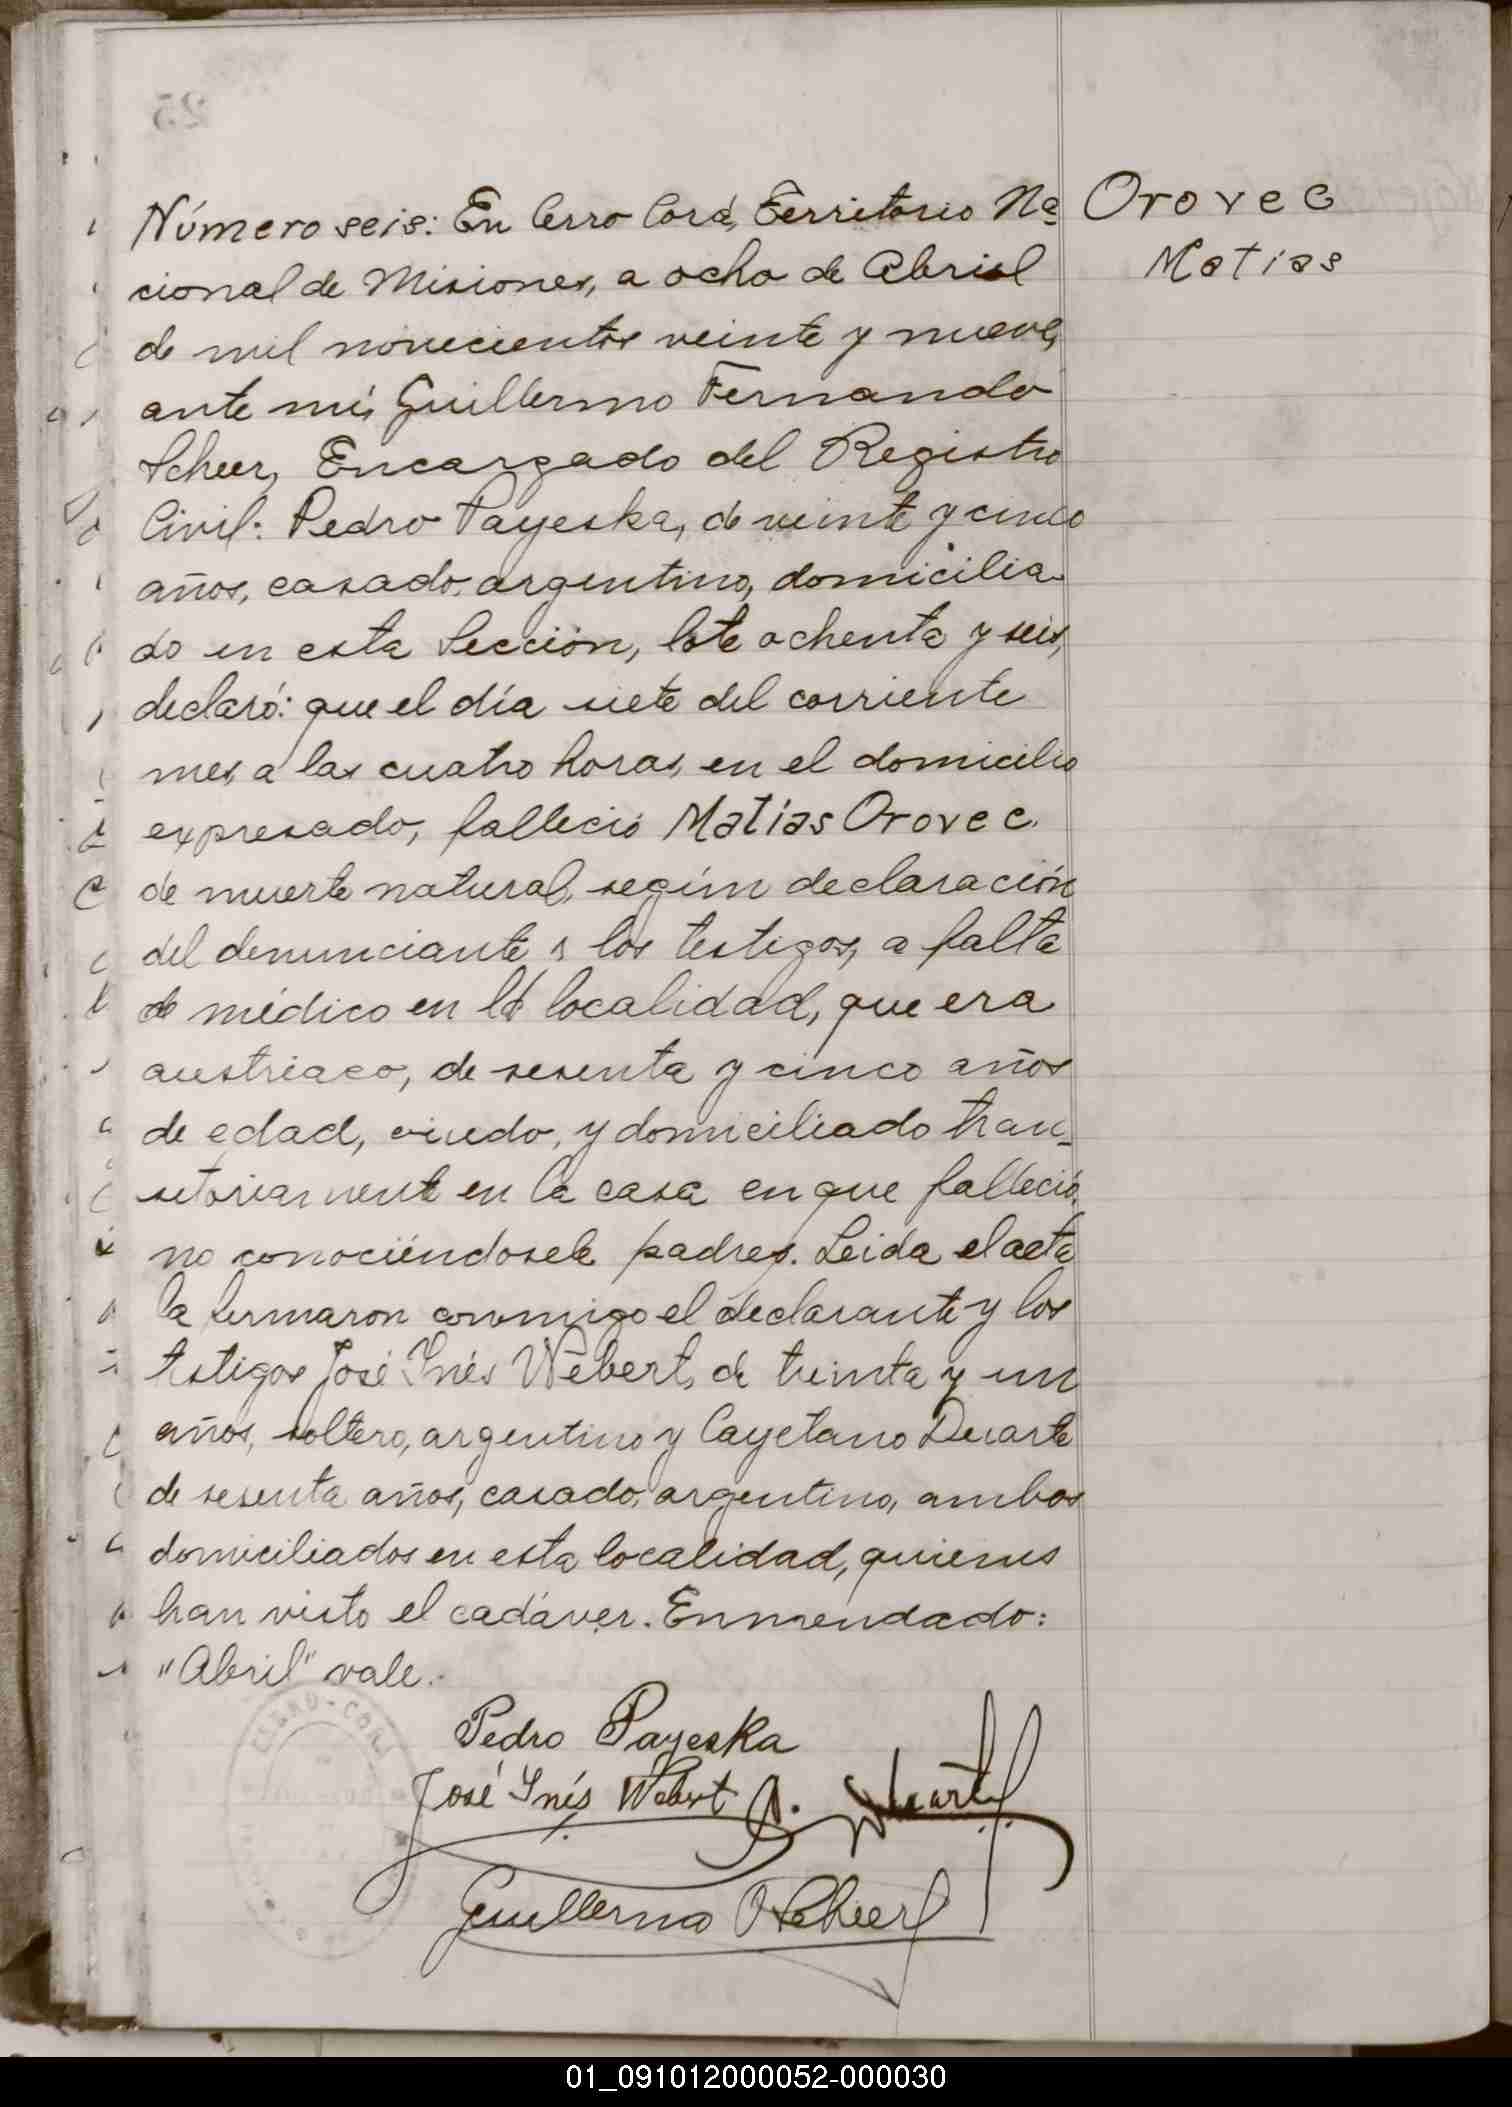 Número seis: En Cerro Corá, Territorio Na
Orovec
Matias
cional de Misiones, a ocho de Abril
de mil novecientos veinte y nueve,
ante mi, Guillermo Fernando
Scheer, Encargado del Registro
Civil: Pedro Payeska, de veinte y cinco
años, casado, argentino, domicilia
do en esta Sección, lote ochenta y seis,
declaró: que el día siete del corriente
mes, a las cuatro horas, en el domicilio
expresado, falleció Matias Orovec
de muerte natural, según declaración
del denunciante y los testigos, a falta
de médico en la localidad, que era
austriaco, de sesenta y cinco años
de edad, viudo, y domiciliado tran-
sitoriamente en la casa en que falleció,
no conociéndosele padres. Leida el acta
la firmaron conmigo el declarante y los
testigos José Inés Webert, de treinta y un
años, soltero, argentino y Cayetano Duarte
de sesenta años, casado, argentino, ambos
domiciliados en esta localidad, quienes
han visto el cadáver. Enmendado:
"Abril" vale.
CERRO-CORÁ
Pedro Payeska
José Inés Webert Duarte
Guillermo Scheer
01_091012000052-000030